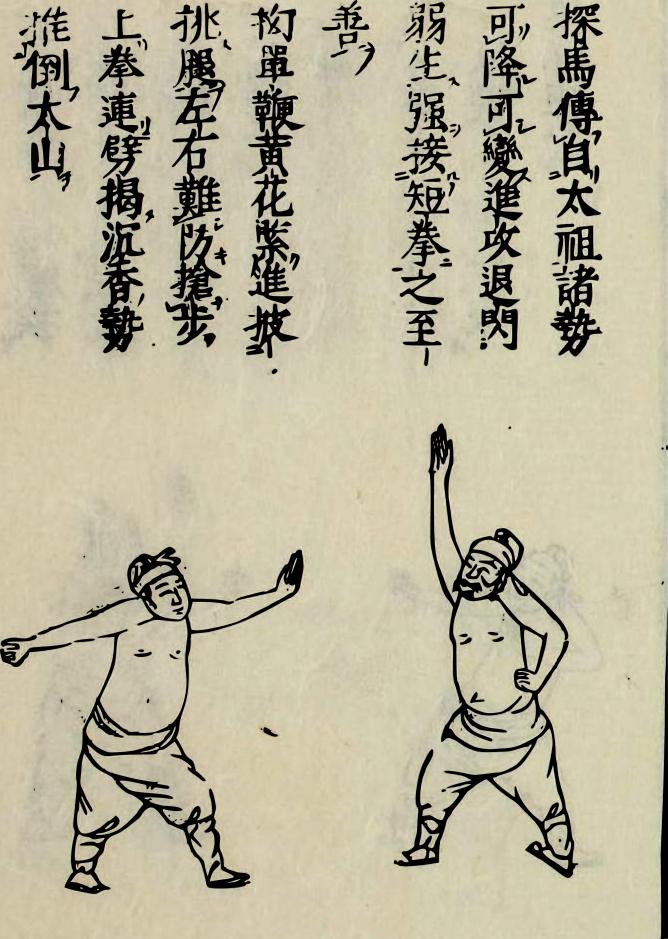 探馬傳自太祖諸勢
可降可變進攻退閃
弱生强接短拳之至
善
拗單鞭黄花緊進披
挑腿左右難防搶步
上拳連劈揭沉香勢
推倒太山